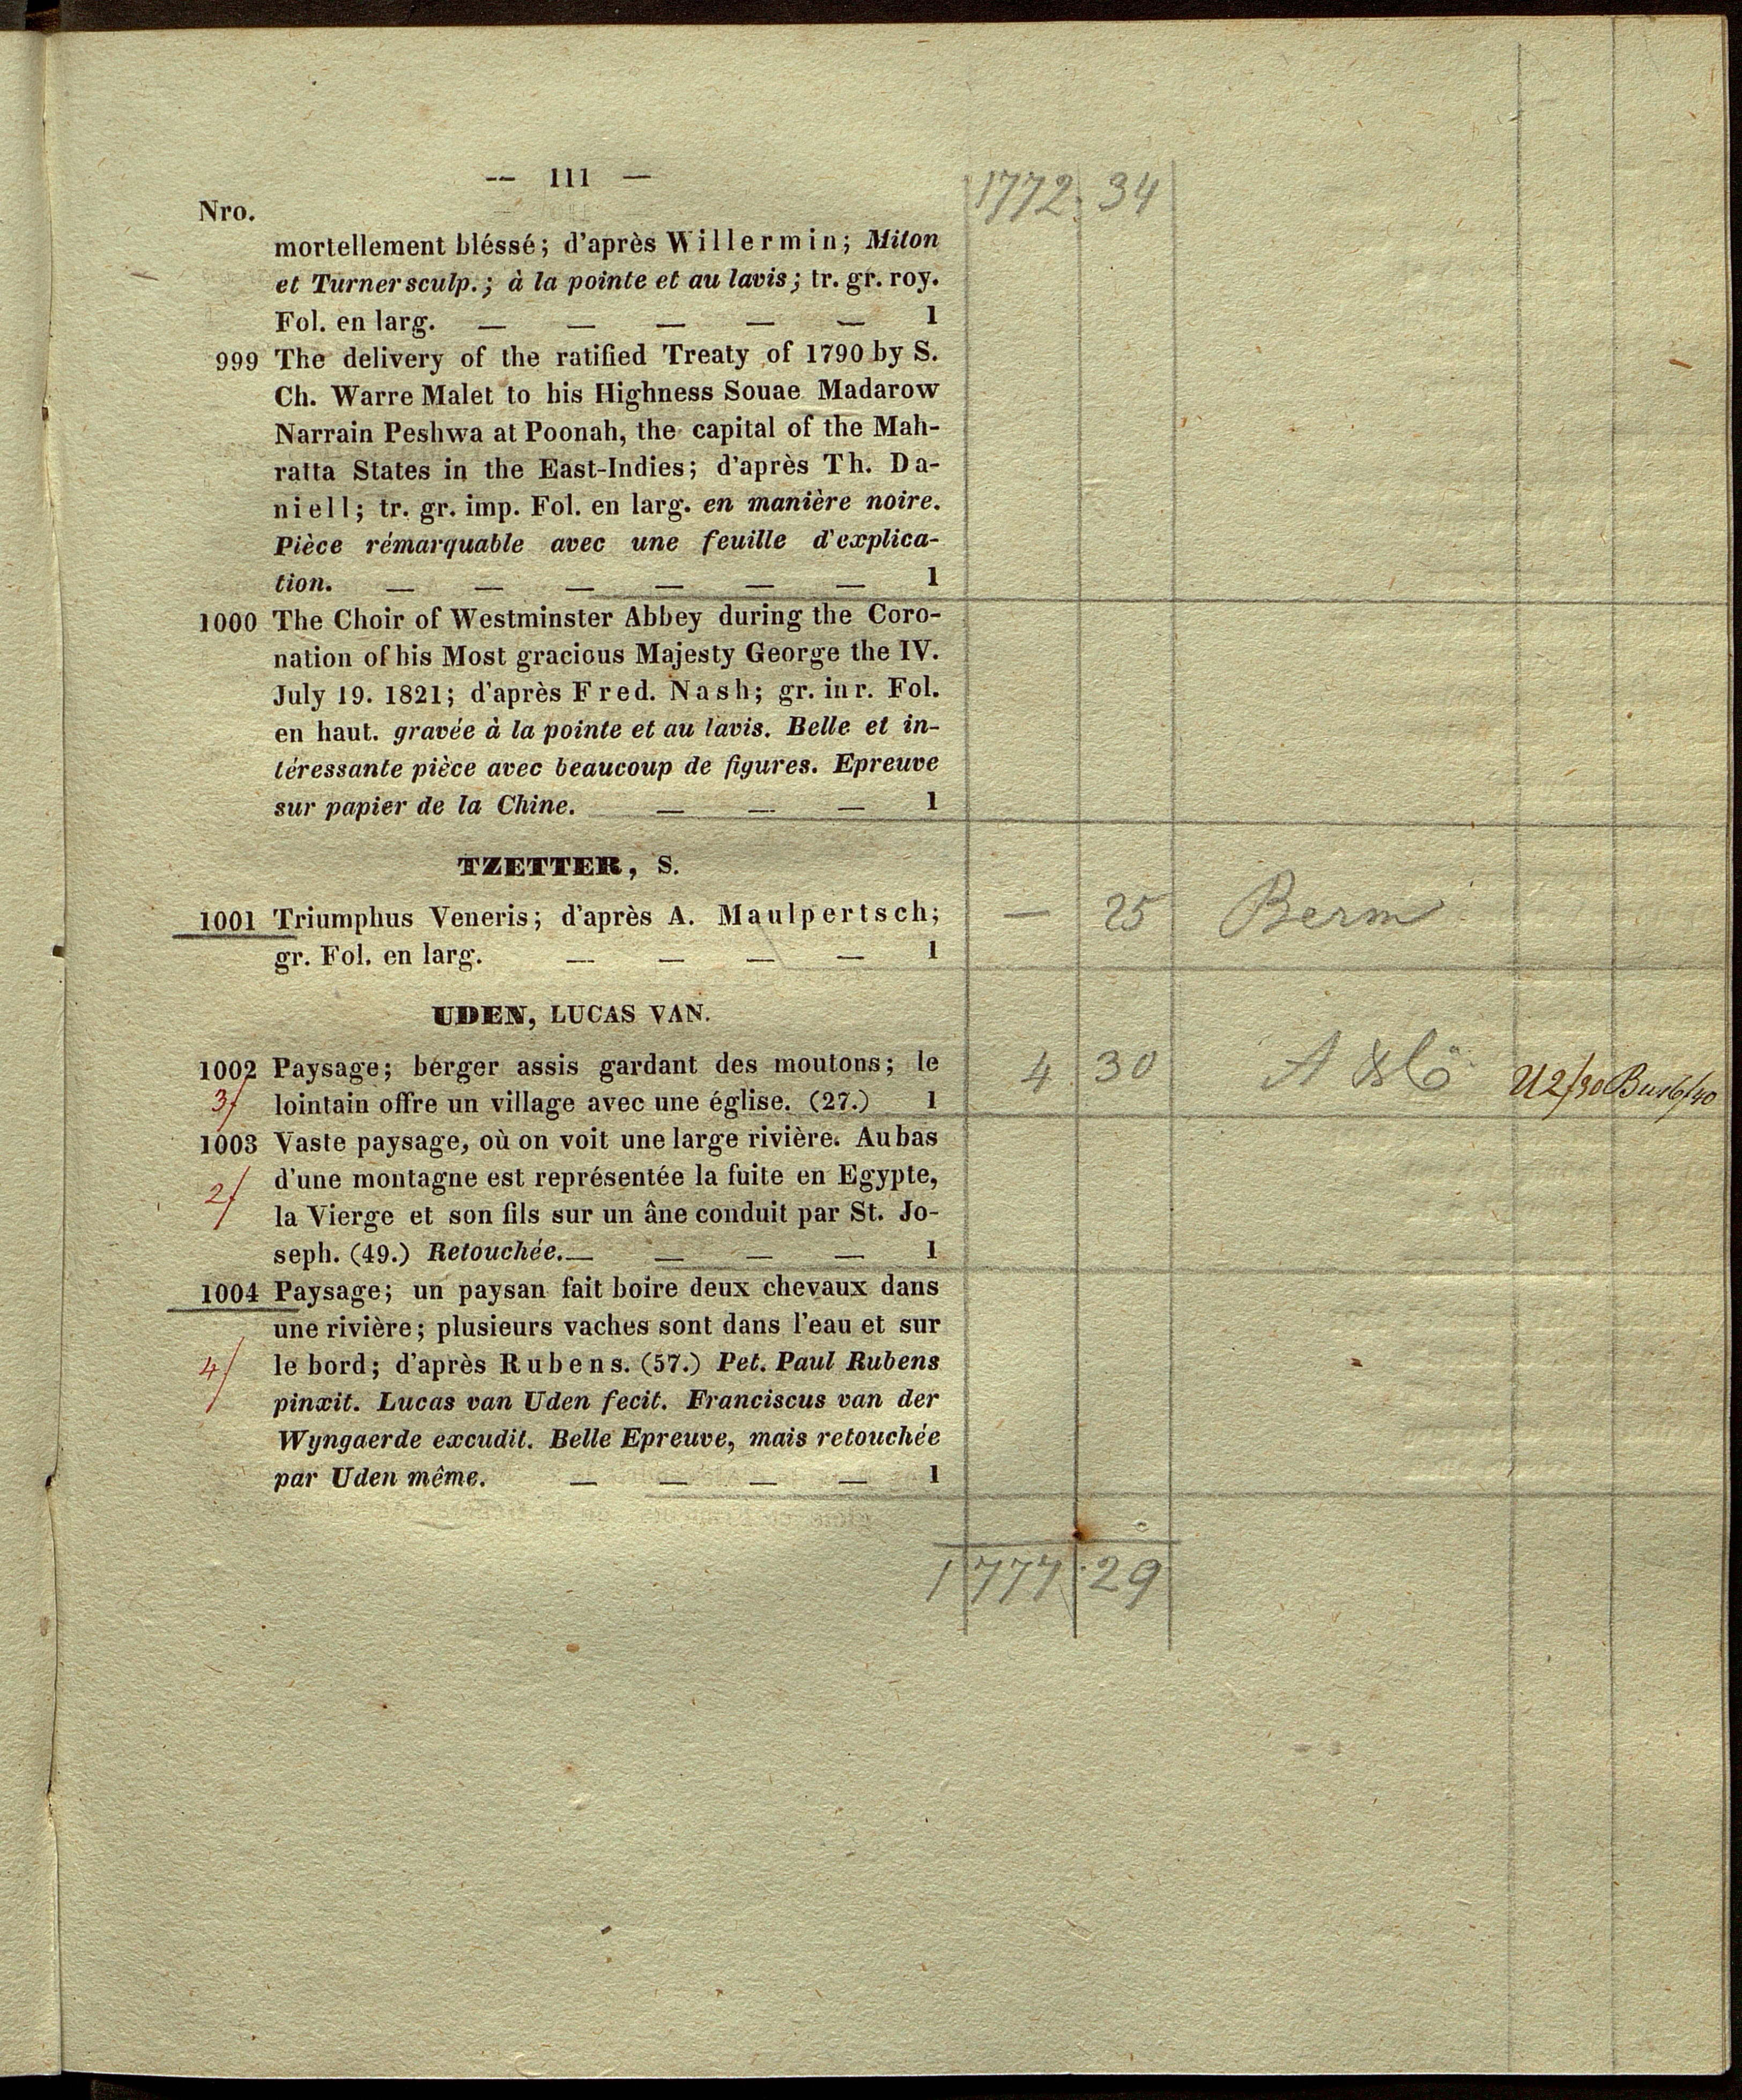 -- 111 —
1772. 34
Nro.
mortellement bléssé; d'après Willermin; Miton
et Turner sculp.; à la pointe et au lavis; tr. gr. roy.
Fol. en larg. — — — — — 1
999 The delivery of the ratified Treaty of 1790 by S.
Ch. Warre Malet to his Highness Souae Madarow
Narrain Peshwa at Poonah, the capital of the Mah-
ratta States in the East-Indies; d'après Th. Da-
niell; tr. gr. imp. Fol. en larg. en manière noire.
Pièce rémarquable avec une feuille d'explica-
tion. — — — — — — 1
1000 The Choir of Westminster Abbey during the Coro-
nation of his Most gracious Majesty George the IV.
July 19. 1821; d'après Fred. Nash; gr. inr. Fol.
en haut. gravée à la pointe et au lavis. Belle et in-
téressante pièce avec beaucoup de figures. Epreuve
sur papier de la Chine. — — — 1
TZETTER, S.
1001 Triumphus Veneris; d'après A. Maulpertsch; — 25 Berm
gr. Fol. en larg. — — — — 1
UDEN, LUCAS VAN.
1002 Paysage; berger assis gardant des moutons; le 4 30
3/ lointain offre un village avec une église. (27.) 1
1003 Vaste paysage, où on voit une large rivière. Au bas
2/ d'une montagne est représentée la fuite en Egypte,
la Vierge et son fils sur un âne conduit par St. Jo-
seph. (49.) Retouchée.— — — — 1
1004 Paysage; un paysan fait boire deux chevaux dans
une rivière; plusieurs vaches sont dans l'eau et sur
4/ le bord; d'après Rubens. (57.) Pet. Paul Rubens
pinxit. Lucas van Uden fecit. Franciscus van der
Wyngaerde excudit. Belle Epreuve, mais retouchée
par Uden même. — — — — 1
1777.29